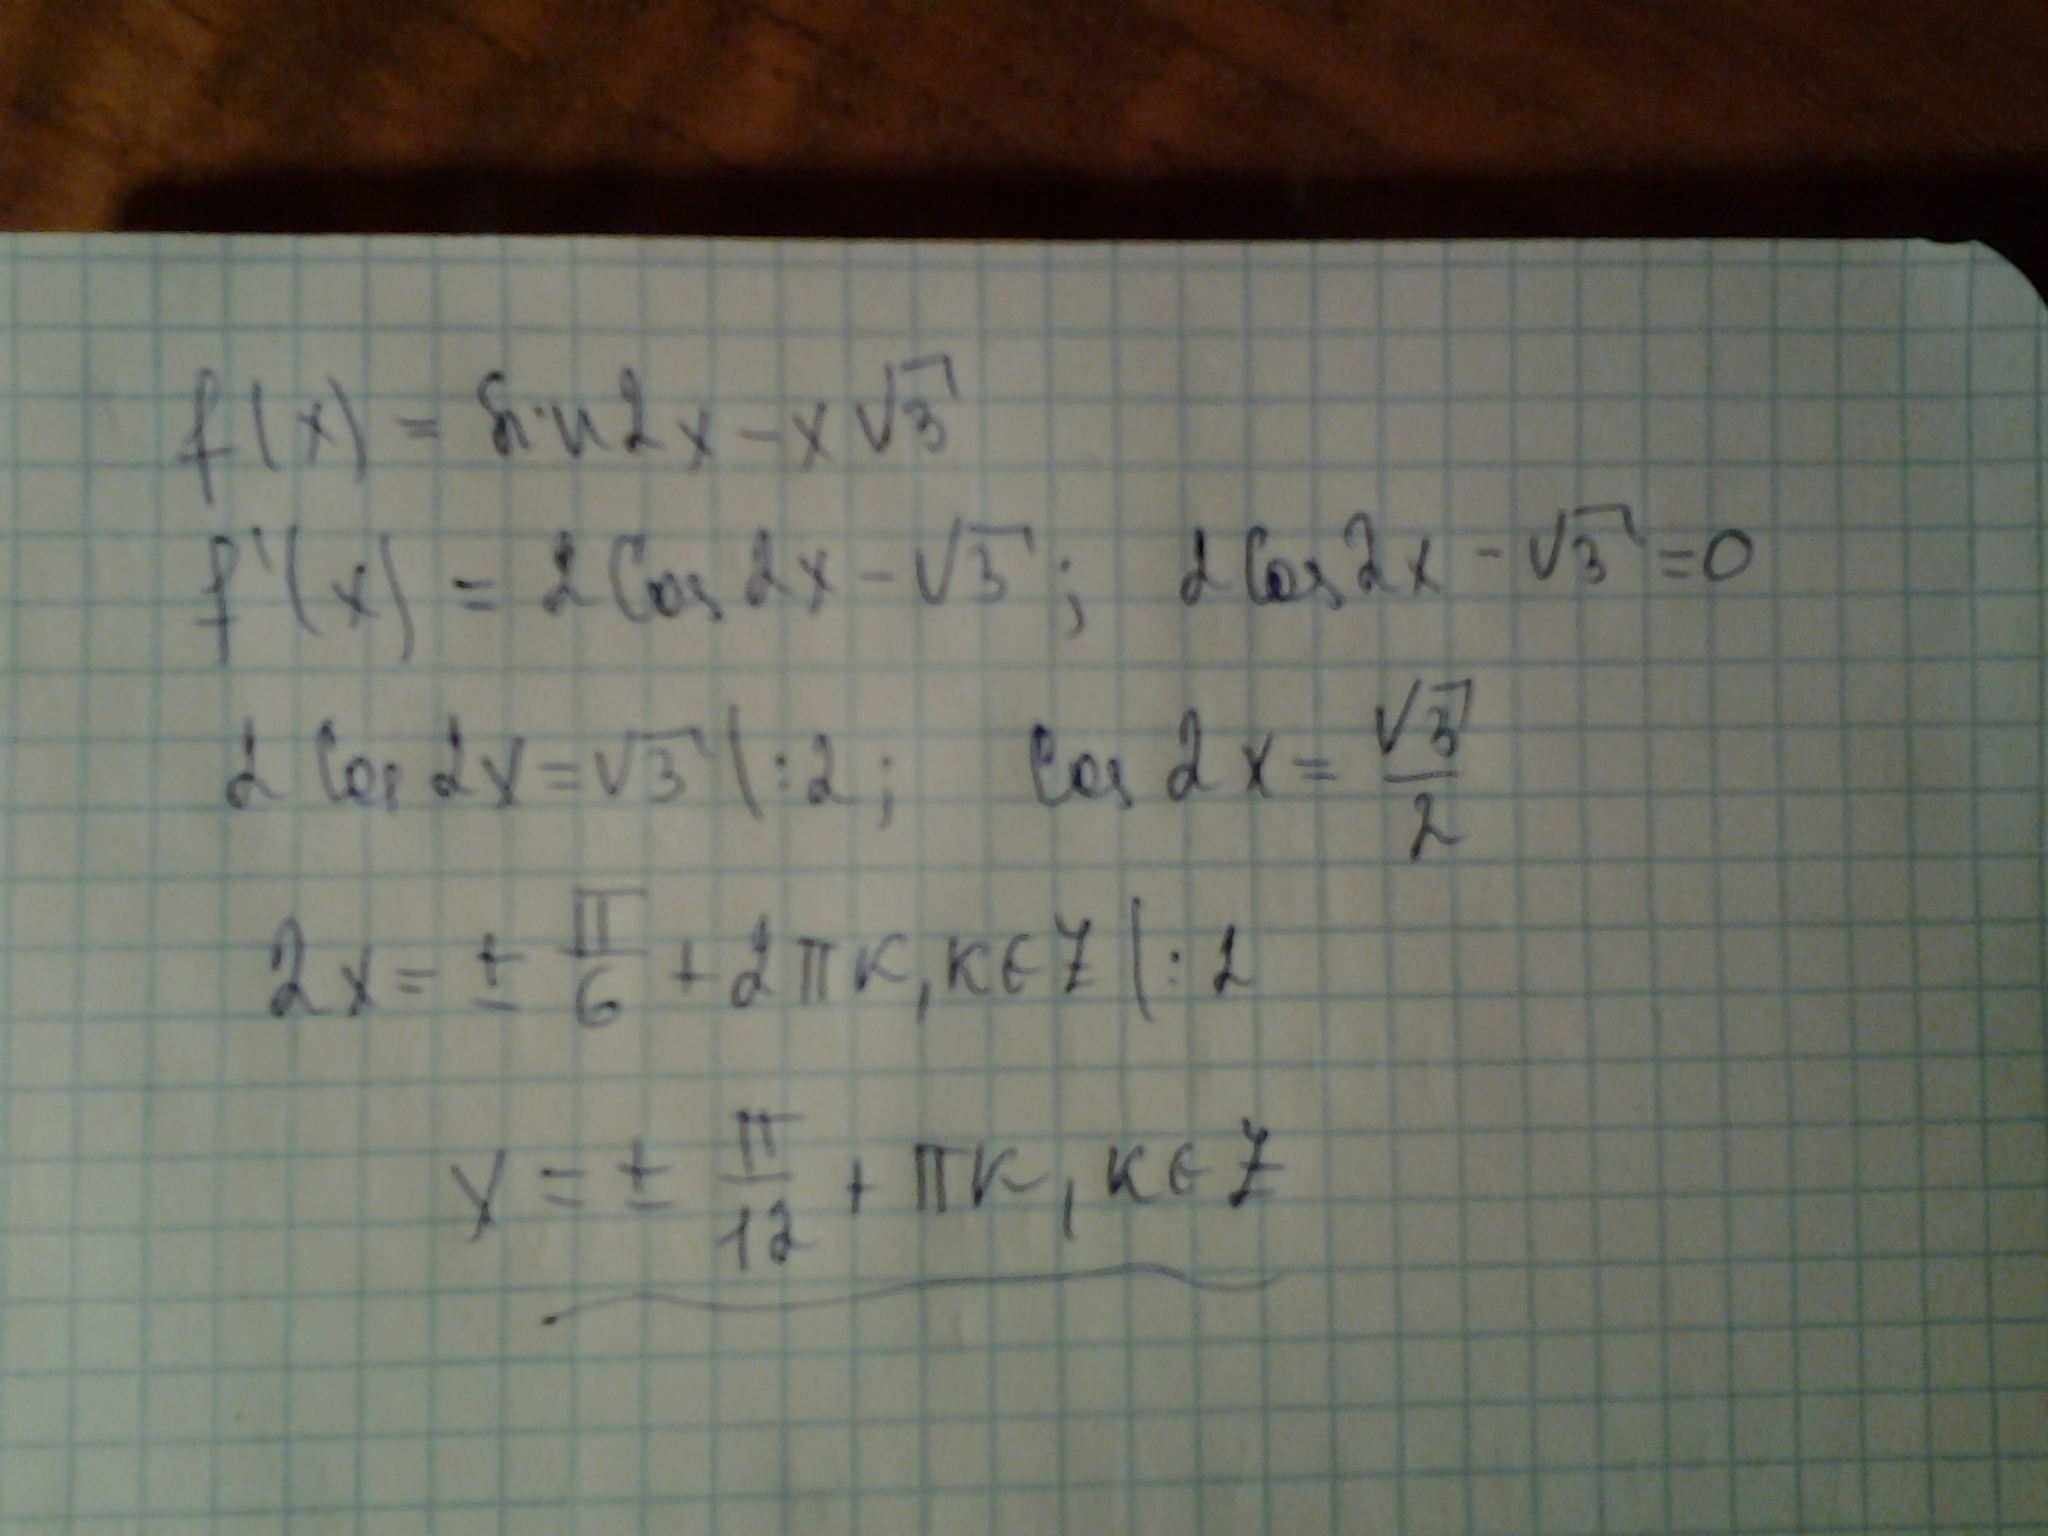 f(x) = sin2x - x√3
f'(x) = 2cos2x - √3; 2cos2x - √3 = 0
2cos2x = √3 |:2; cos2x = √3/2
2x = ± π/6 + 2πk, k∈Z |:2
x = ± π/12 + πk, k∈Z